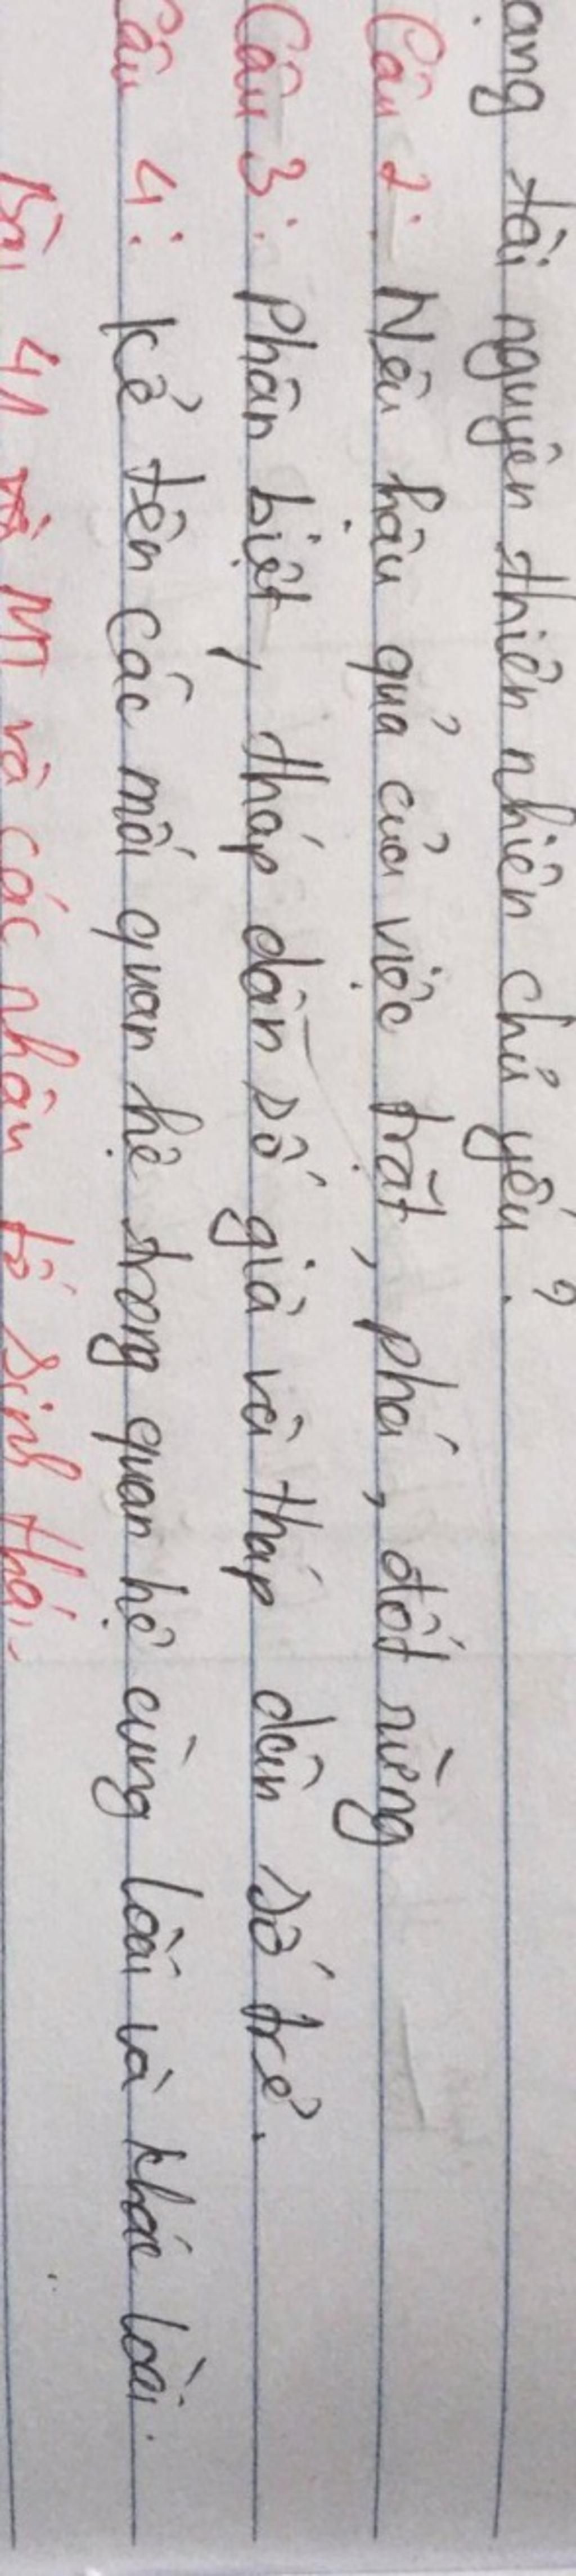 ạng tài nguyên thiên nhiên chủ yếu?
Câu 2: Nêu hậu quả của việc trặt, phá, đốt rừng
Câu 3: Phân biệt, tháp dân số già và tháp dân số trẻ.
Câu 4: Kể tên các mối quan hệ trong quan hệ cùng loài và khác loài.
Bài 41 MT và các nhân tố sinh thái.